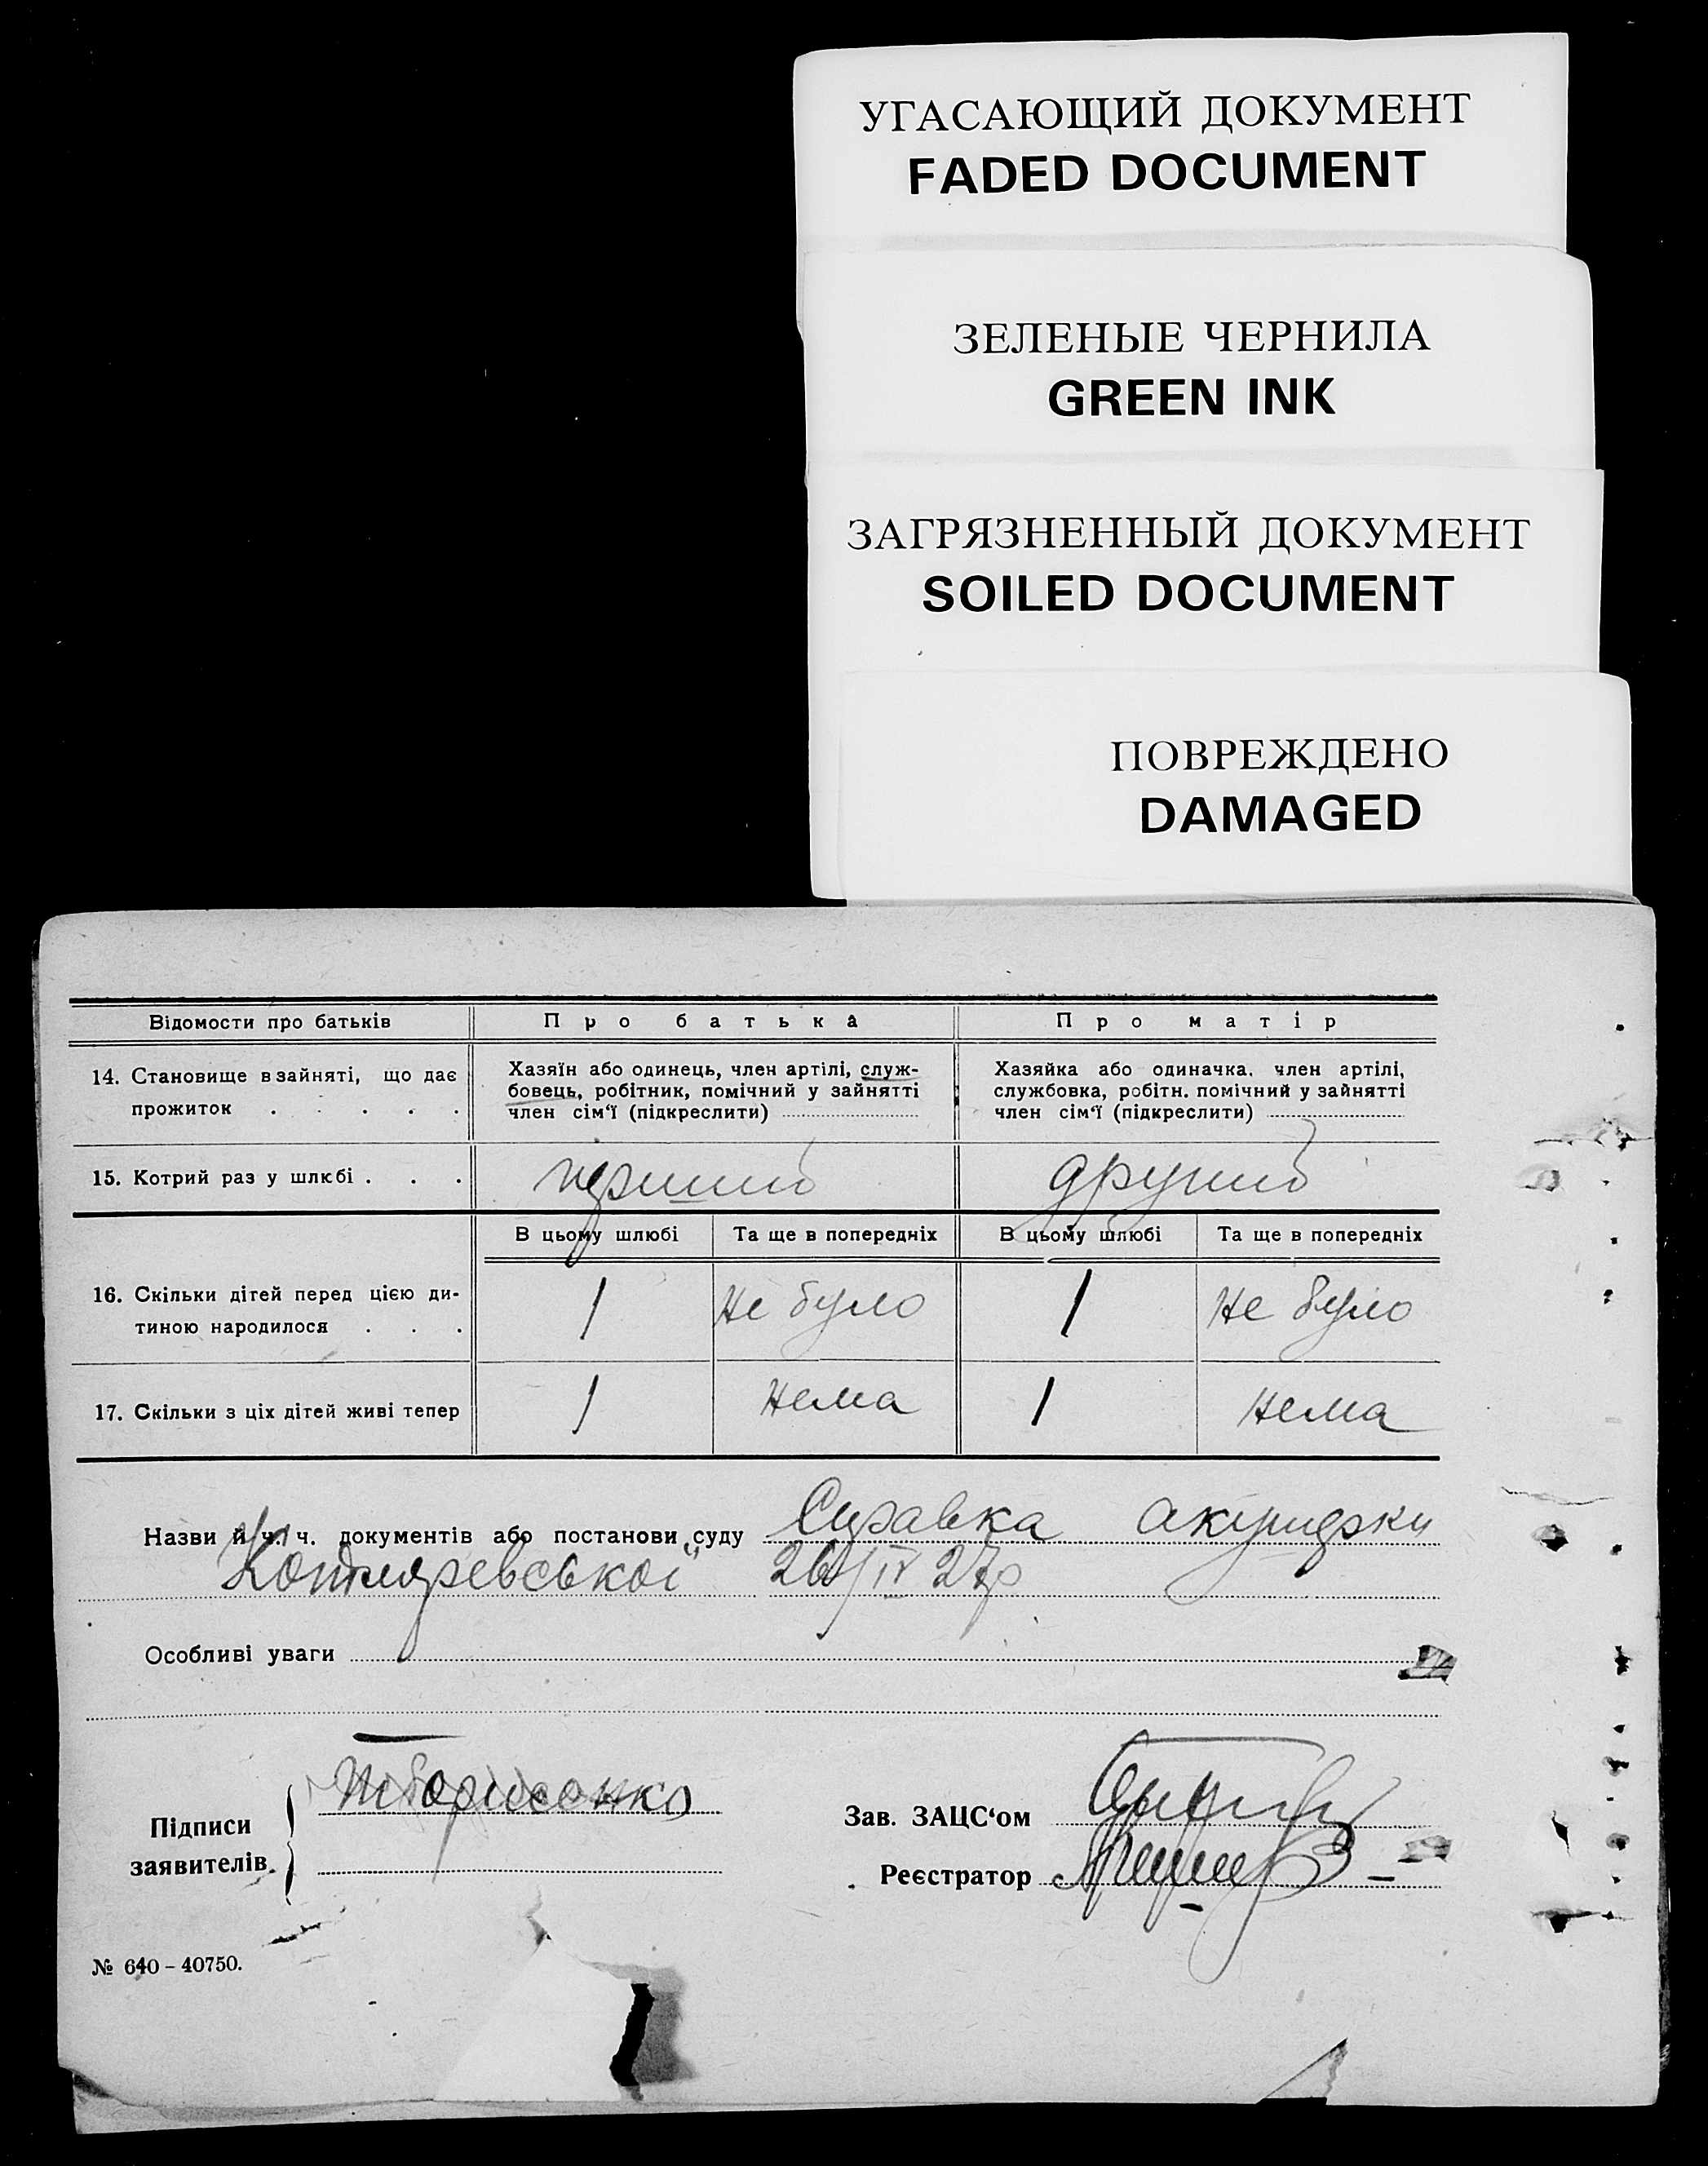 УГАСАЮЩИЙ ДОКУМЕНТ
FADED DOCUMENT
ЗЕЛЕНЫЕ ЧЕРНИЛА
GREEN INK
ЗАГРЯЗНЕННЫЙ ДОКУМЕНТ
SOILED DOCUMENT
ПОВРЕЖДЕНО
DAMAGED
Відомости про батьків
Про батька
Про матір
14. Становище в зайняті, що дає
прожиток . . . . .
Хазяїн або одинець, член артілі, служ-
бовець, робітник, помічний у зайнятті
член сім'ї (підкреслити)
Хазяйка або одиначка, член артілі,
службовка, робітн. помічний у зайнятті
член сім'ї (підкреслити)
15. Котрий раз у шлюбі . . .
перший
другий
В цьому шлюбі
Та ще в попередніх
В цьому шлюбі
Та ще в попередніх
16. Скільки дітей перед цією ди-
тиною народилося . . .
1
Не було
1
Не було
17. Скільки з ціх дітей живі тепер
1
Нема
1
Нема
Назви й ч. ч. документів або постанови суду Справка акушерки
26/IV 27р
Особливі уваги
Підписи
заявителів
Борисенко
Зав. ЗАЦС'ом
Реєстратор
№ 640 – 40750.